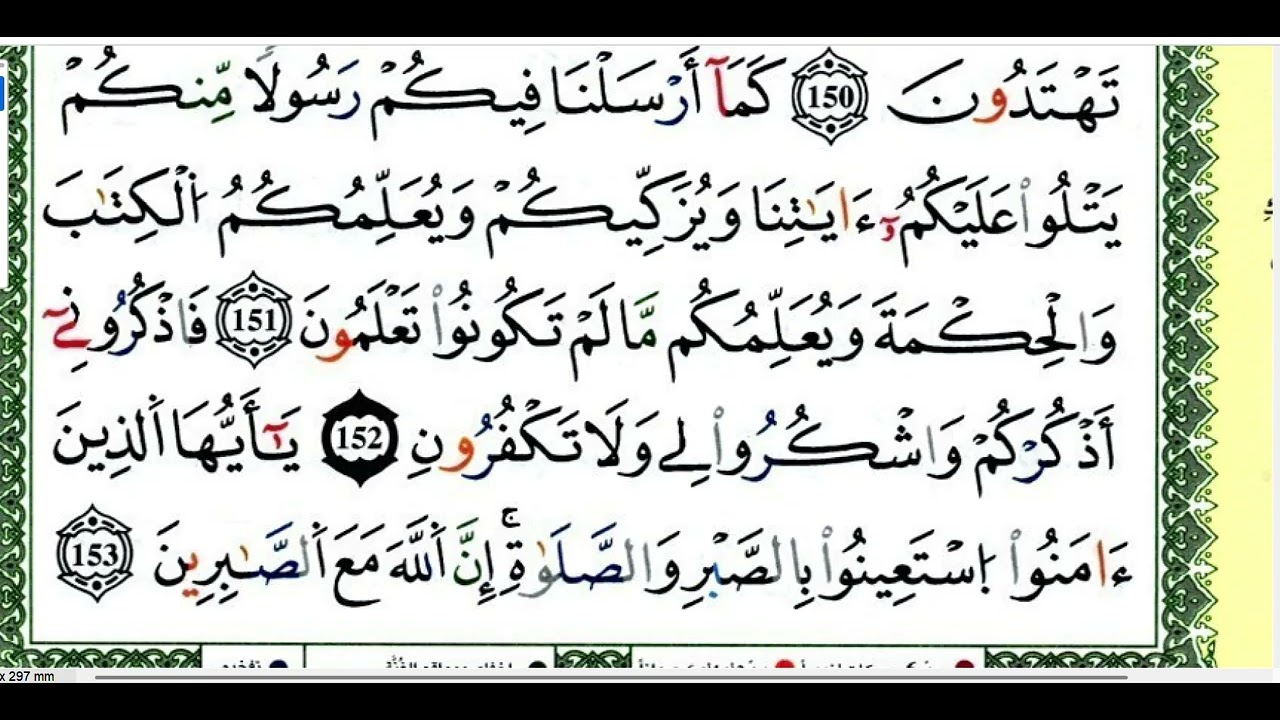 تَهْتَدُونَ 150 كَمَآ أَرْسَلْنَا فِيكُمْ رَسُولًا مِّنكُمْ
يَتْلُواْ عَلَيْكُمُۥٓ ءَايَٰتِنَا وَيُزَكِّيكُمْ وَيُعَلِّمُكُمُ اُ۬لْكِتَٰبَ
وَالْحِكْمَةَ وَيُعَلِّمُكُم مَّا لَمْ تَكُونُواْ تَعْلَمُونَ 151 فَاذْكُرُونِےٓ
أَذْكُرْكُمْ وَاشْكُرُواْ لِے وَلَا تَكْفُرُونِ 152 يَٰٓأَيُّهَا اَ۬لذِينَ
ءَامَنُواْ اُ۪سْتَعِينُواْ بِالصَّبْرِ وَالصَّلَوٰةِۚ إِنَّ اَ۬للَّهَ مَعَ اَ۬لصَّٰبِرِينَ 153
x 297 mm